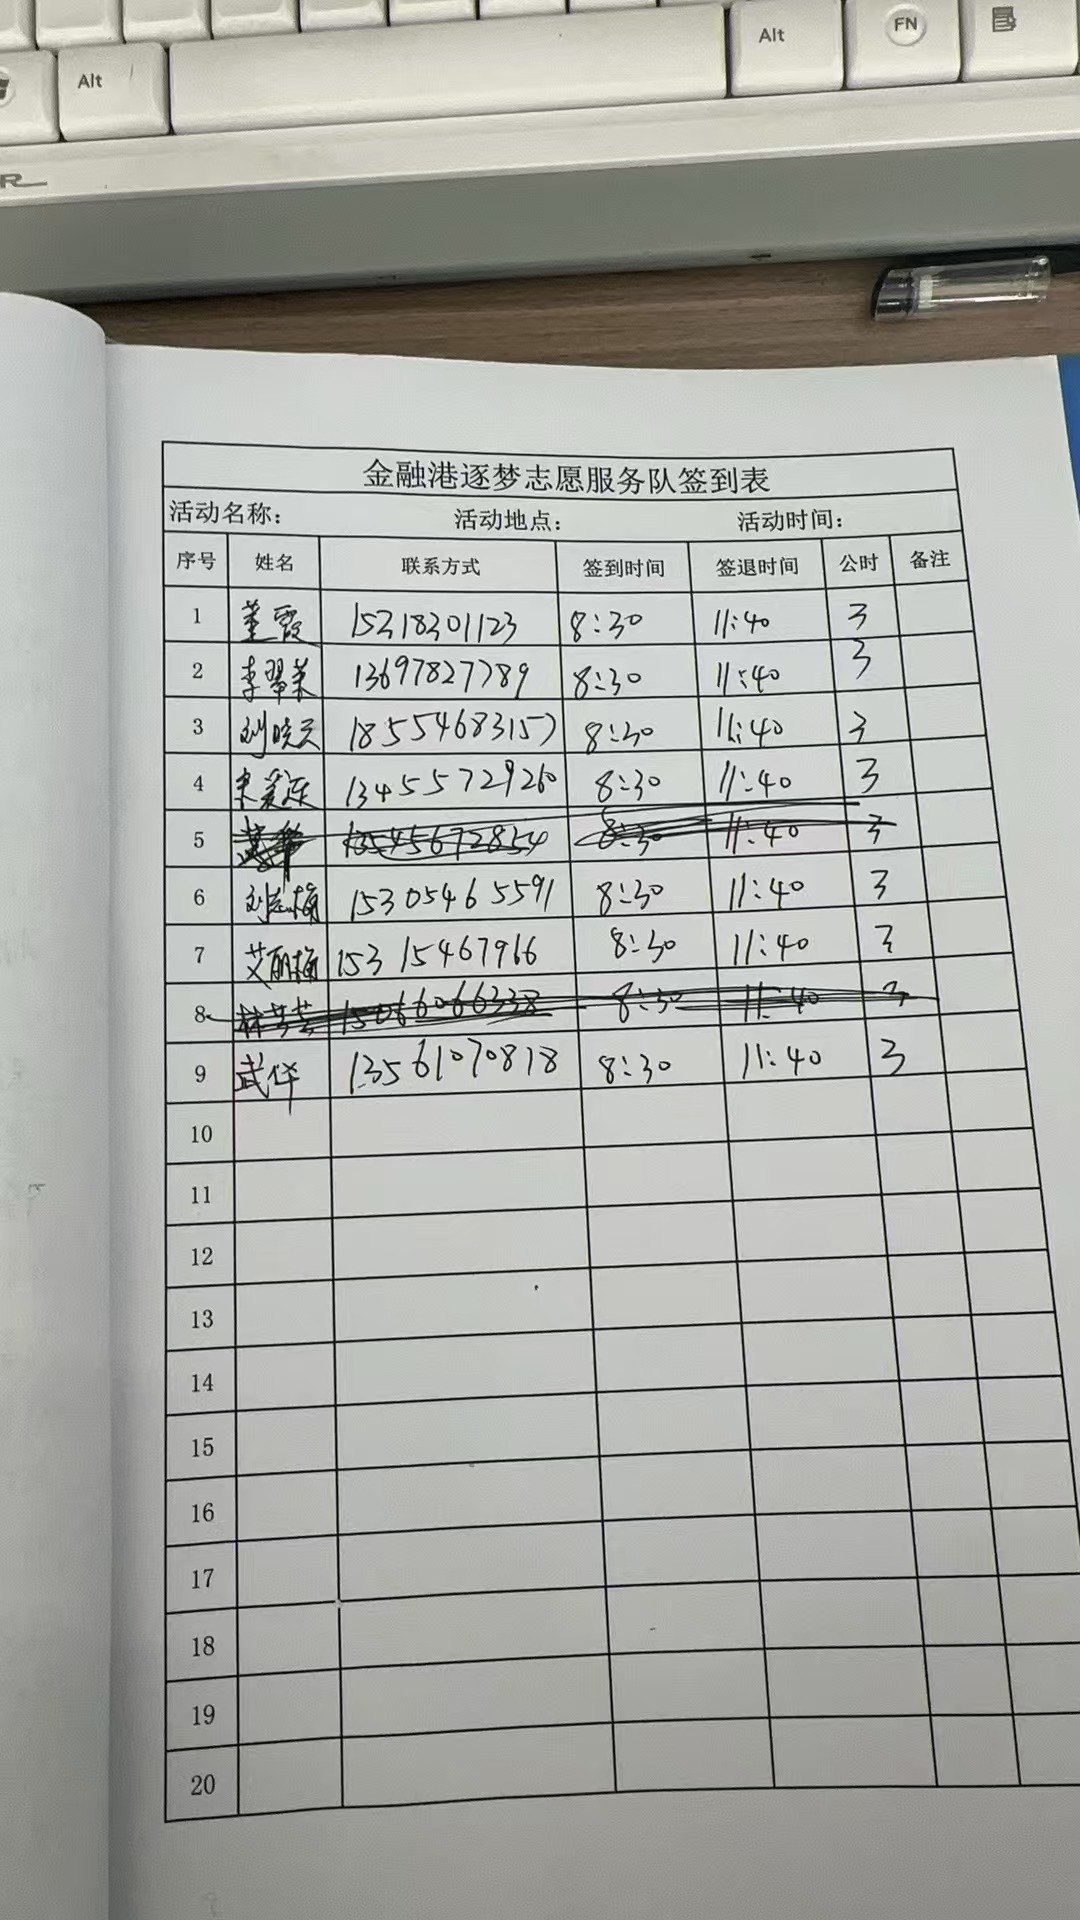 Alt
Alt
FN
金融港逐梦志愿服务队签到表
活动名称： 活动地点： 活动时间：
序号 姓名 联系方式 签到时间 签退时间 公时 备注
1 董霞 15318301123 8:30 11:40 3
2 李翠荣 13697827789 8:30 11:40 3
3 刘晓云 18554683157 8:30 11:40 3
4 13455729260 8:30 11:40 3
5 8:30 11:40 3
6 刘志梅 15305465591 8:30 11:40 3
7 艾丽梅 15315467966 8:30 11:40 3
8 林芳芳 15066066338 8:30 11:40 3
9 武华 13561070818 8:30 11:40 3
10
11
12
13
14
15
16
17
18
19
20